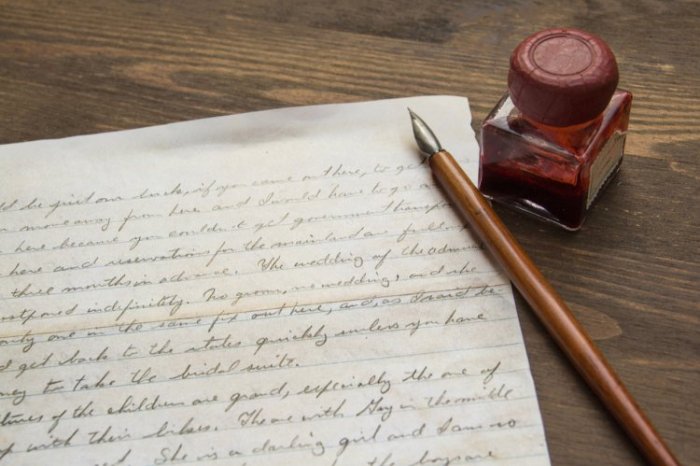 ld be just our luck, if you came out here, to get
move away from here and I would have to go a
here because you couldn't get government transpor
here and reservations for the mainland are full up
three months in advance. The wedding of the Admira
ostponed indefinitely. No groom, no wedding, and she
only one in the same fix out here, and, as I said be
d get back to the states quickly unless you have
ney to take the bridal suite.
tures of the children are grand, especially the one of
p with their bikes. The one with Gay in the middle
She is a darling girl and I am so
the boys are